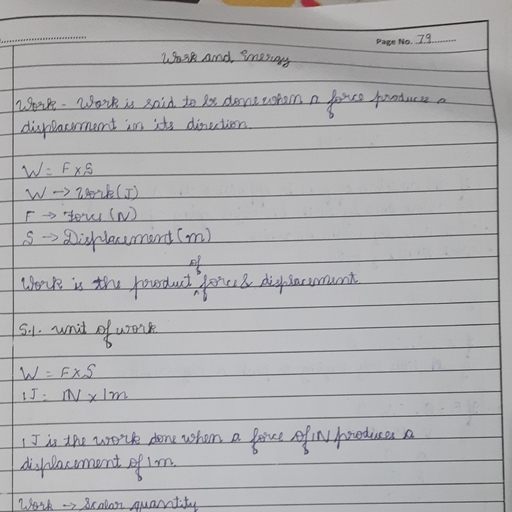 Page No. 79
Work and Energy
Work - Work is said to be done when a force produces a
displacement in its direction.
W = F x S
W → Work (J)
F → Force (N)
S → Displacement (m)
Work is the product of force & displacement
S.I. unit of work
W = F x S
1J = 1N x 1m
1 J is the work done when a force of 1N produces a
displacement of 1m.
Work → Scalar quantity